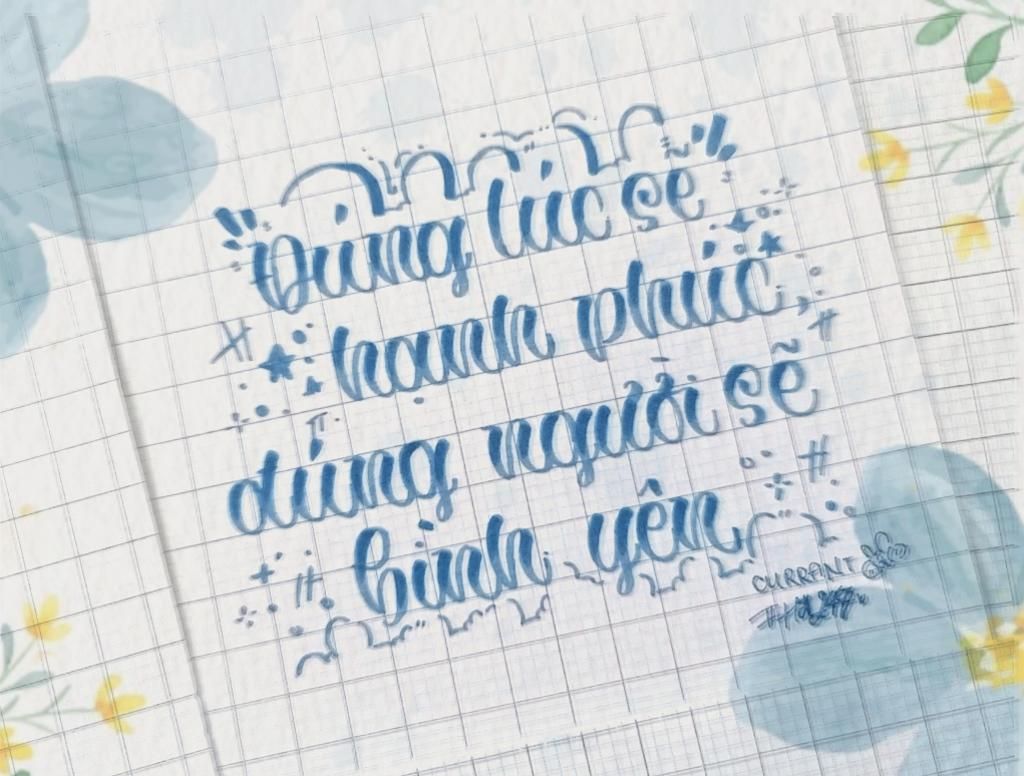 "Đúng lúc sẽ
hạnh phúc,
đúng người sẽ
bình yên
CURRANT